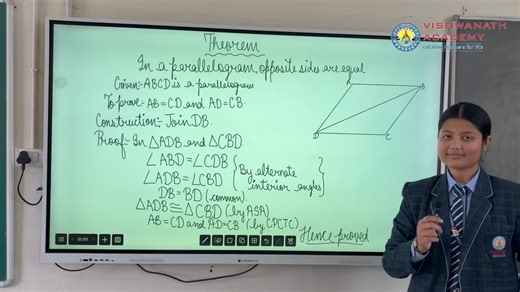 VISHWANATH
ACADEMY
Theorem
In a parallelogram, opposite sides are equal
Given:- ABCD is a parallelogram
To prove:- AB = CD and AD = CB.
Construction:- Join DB.
Proof:- In △ADB and △CBD.
∠ABD = ∠CDB
∠ADB = ∠CBD { By alternate interior angles }
DB = BD (common)
△ADB ≅ △CBD (by ASA)
AB = CD and AD = CB (by CPCTC)
Hence proved
A
B
D
C